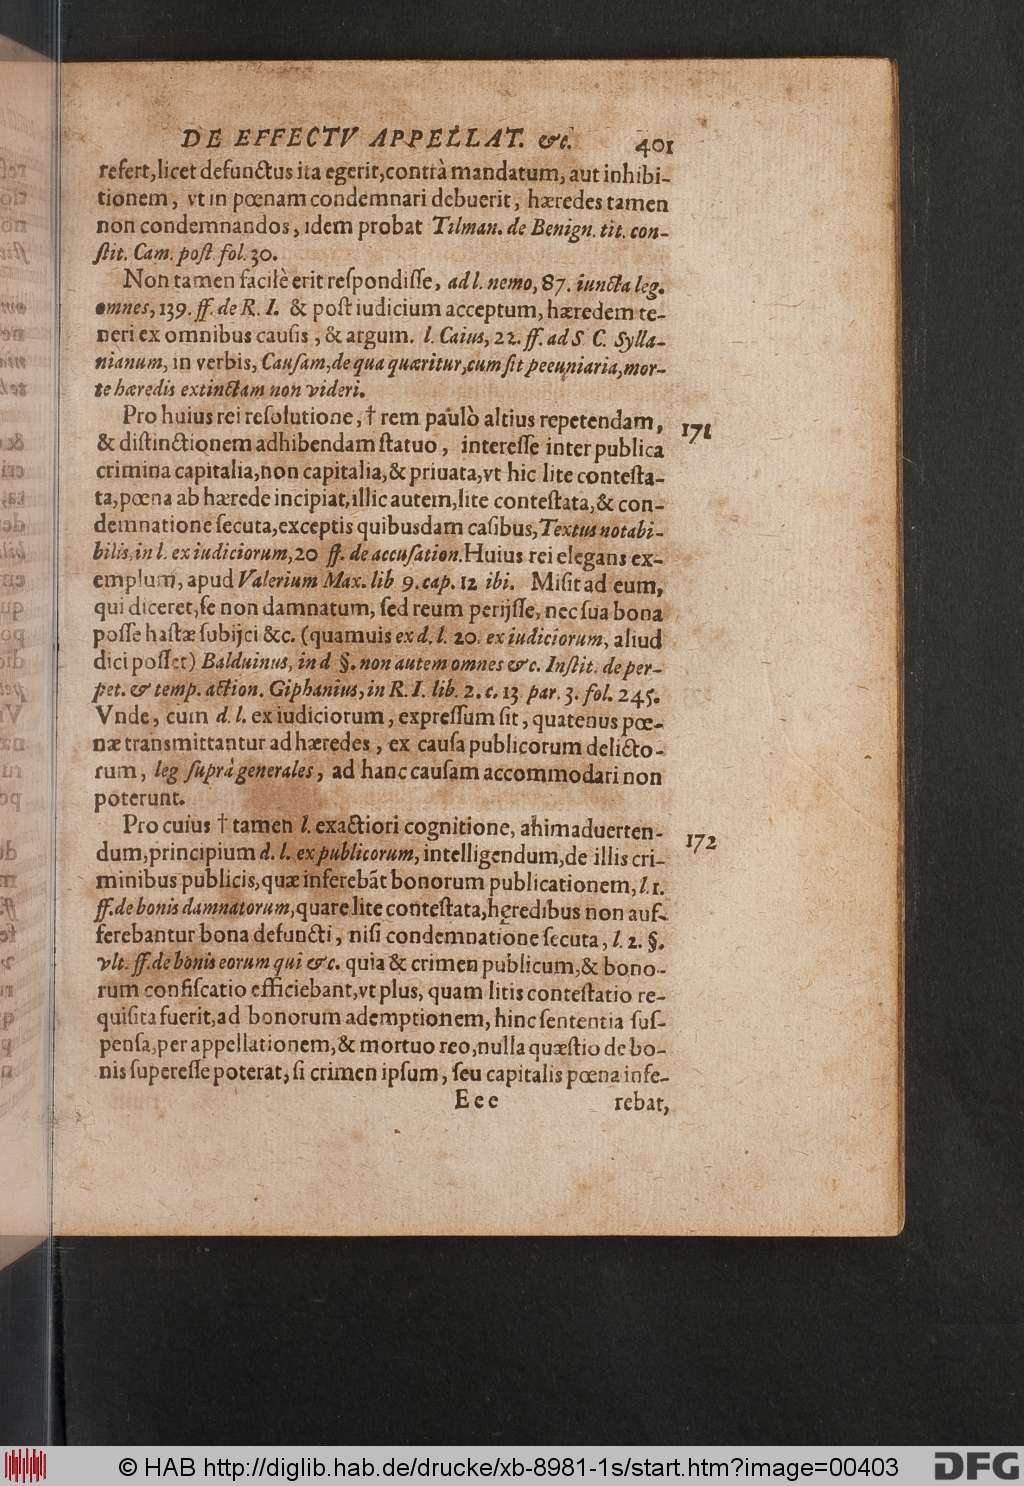 DE EFFECTV APPELLAT. &c. 401
refert,licet defunctus ita egerit,contrà mandatum, aut inhibi-
tionem, vt in pœnam condemnari debuerit, hæredes tamen
non condemnandos, idem probat Tilman. de Benign. tit. con-
ſtit. Cam. poſt. fol. 30.
Non tamen facilè erit reſpondiſſe, ad l. nemo, 87. iuncta leg.
omnes, 139. ff. de R. I. & poſt iudicium acceptum, hæredem te-
neri ex omnibus cauſis, & argum. l. Caius, 22. ff. ad S. C. Sylla-
nianum, in verbis, Cauſam,de qua quæritur,cum ſit peeuniaria,mor-
te hæredis extinctam non videri.
Pro huius rei reſolutione, † rem paulò altius repetendam, 171
& diſtinctionem adhibendam ſtatuo, intereſſe inter publica
crimina capitalia,non capitalia,& priuata,vt hic lite conteſta-
ta,pœna ab hærede incipiat,illic autem,lite conteſtata,& con-
demnatione ſecuta,exceptis quibusdam caſibus,Textus notabi-
bilis,in l. ex iudiciorum,20 ff. de accuſation.Huius rei elegans ex-
emplum, apud Valerium Max. lib 9. cap. 12 ibi. Miſit ad eum,
qui diceret,ſe non damnatum, ſed reum perijſſe, nec ſua bona
poſſe haſtæ ſubijci &c. (quamuis ex d. l. 20. ex iudiciorum, aliud
dici poſſet) Balduinus, in d §. non autem omnes &c. Inſtit. de per-
pet. & temp. action. Giphanius, in R. I. lib. 2. c. 13 par. 3. fol. 245.
Vnde, cum d. l. ex iudiciorum, expreſſum ſit, quatenus pœ-
næ transmittantur ad hæredes, ex cauſa publicorum delicto-
rum, leg ſuprà generales, ad hanc cauſam accommodari non
poterunt.
Pro cuius † tamen l. exactiori cognitione, ahimaduerten- 172
dum,principium d. l. ex publicorum, intelligendum,de illis cri-
minibus publicis,quæ inferebāt bonorum publicationem, l. 1.
ff. de bonis damnatorum,quare lite conteſtata,hęredibus non auf-
ferebantur bona defuncti, niſi condemnatione ſecuta, l. 2. §.
vlt. ff. de bonis eorum qui &c. quia & crimen publicum,& bono-
rum confiſcatio efficiebant,vt plus, quam litis conteſtatio re-
quiſita fuerit,ad bonorum ademptionem, hinc ſententia ſuſ-
penſa,per appellationem,& mortuo reo,nulla quæſtio de bo-
nis ſupereſſe poterat, ſi crimen ipſum, ſeu capitalis pœna infe-
Eee rebat,
© HAB http://diglib.hab.de/drucke/xb-8981-1s/start.htm?image=00403
DFG